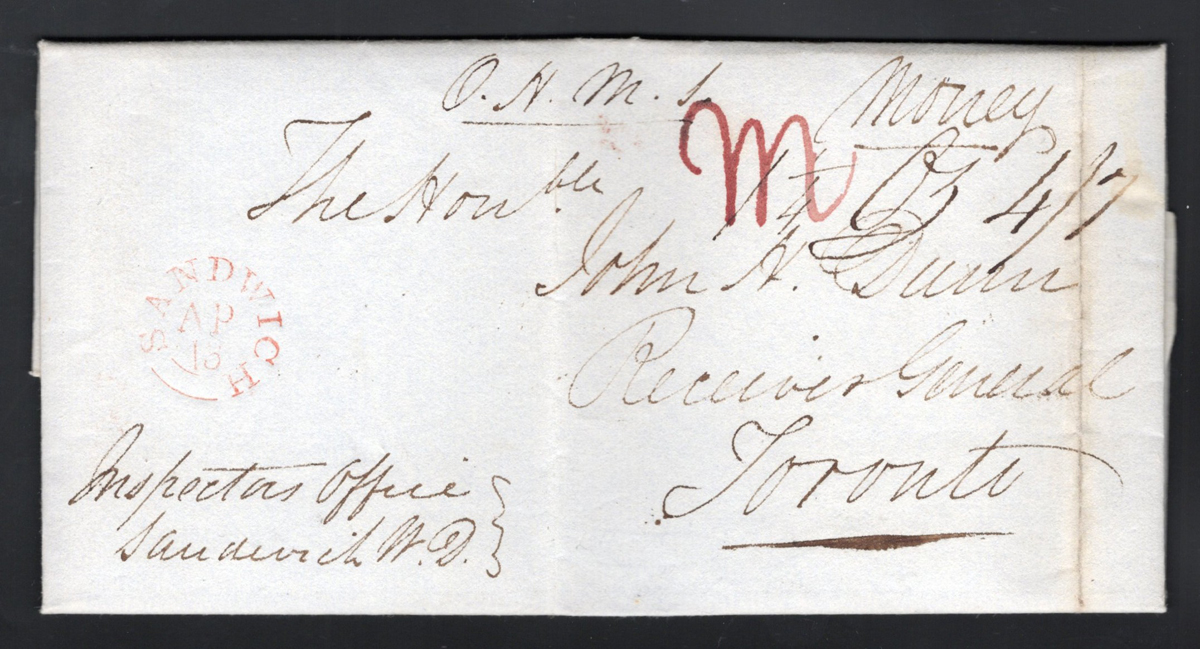 O. H. M. S.
Money
M
The Honble
4/7
John H. Dunn
Receiver General
Toronto
SANDWICH
AP
Inspectors Office
Sandwich W. D.